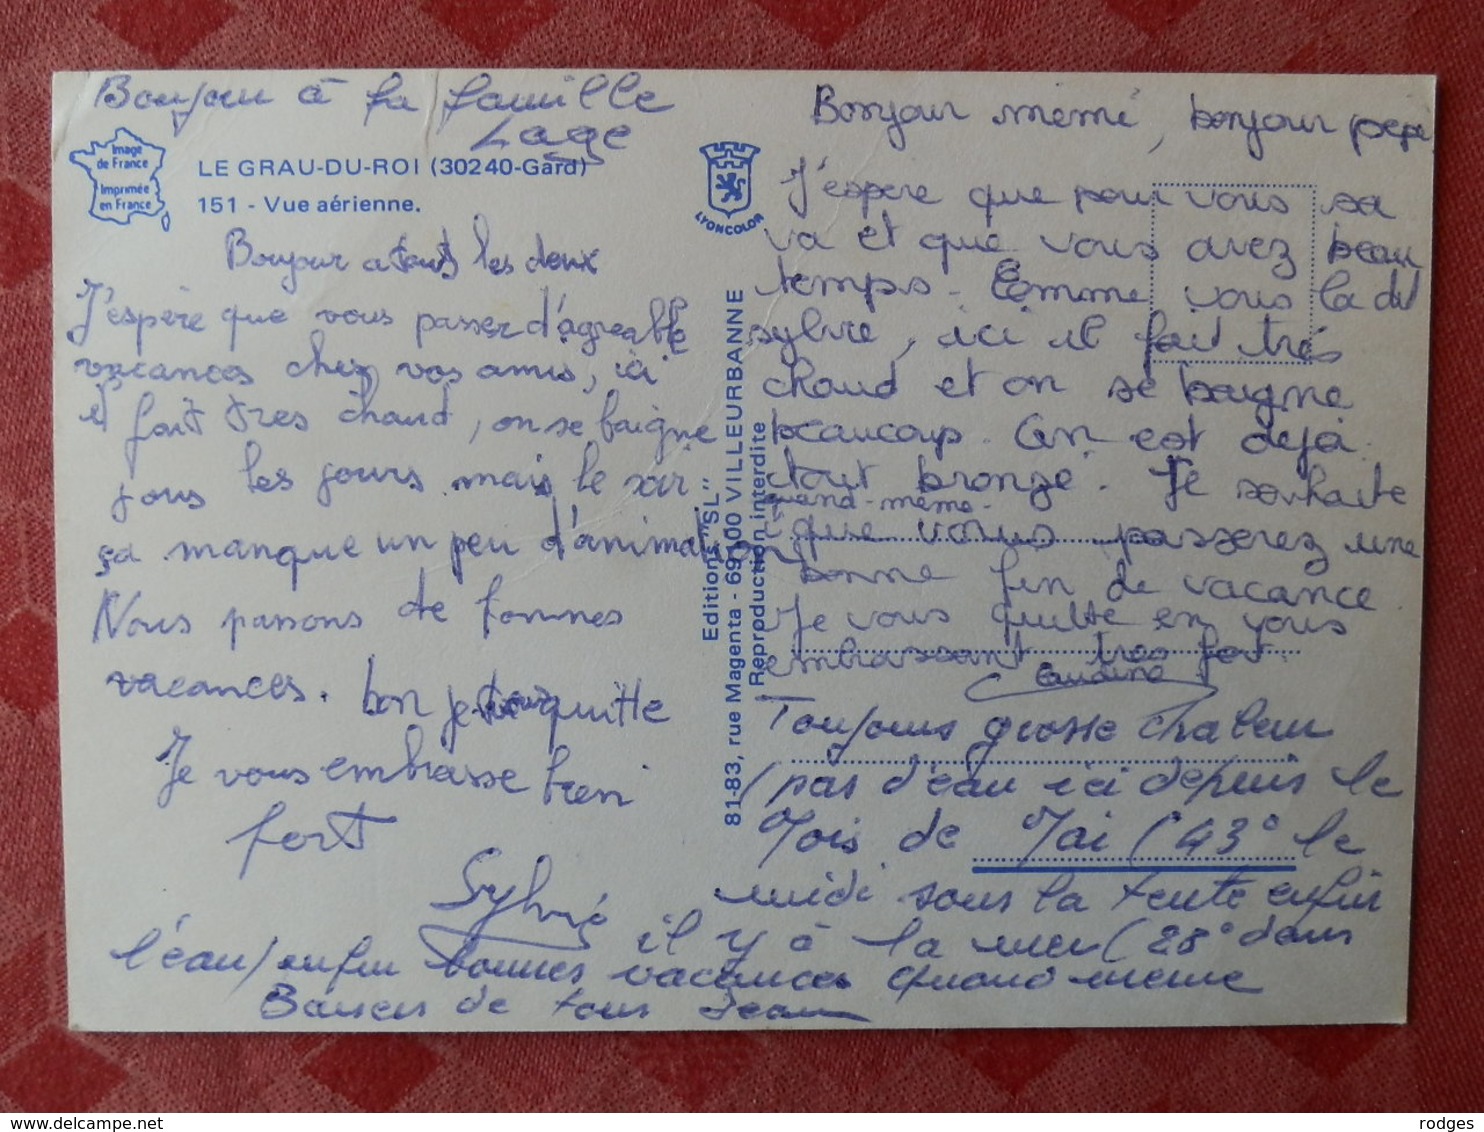 Bonjour à la famille
Lage
Image
de France
Imprimée
en France
LE GRAU-DU-ROI (30240-Gard)
151 - Vue aérienne.
LYONCOLOR
Bonjour a tous les deux
J'espère que vous passer d'agreable
vacances chez vos amis, ici
il fait très chaud, on se baigne
tous les jours mais le soir
ça manque un peu d'animation
Nous passons de bonnes
vacances. bon je vous quitte
Je vous embrasse bien
fort
Sylvie
Editions "SL"
81-83, rue Magenta - 69100 VILLEURBANNE
Reproduction interdite
Bonjour mémé, bonjour pépé
J'espère que pour vous sa
va et que vous avez beau
temps. Comme vous la dit
sylvie, ici il fait très
chaud et on se baigne
beaucoup. On est dejà
tout bronzé. Je souhaite
quand-même
que vous passerez une
bonne fin de vacance.
Je vous quitte en vous
embrassant tres fort.
Toujours grosse chaleur
(pas d'eau ici depuis le
Mois de Mai (43° le
midi sous la tente enfin
il y à la mer (28° dans
l'eau) enfin bonnes vacances quand meme
Baisers de tous Jean
rodges